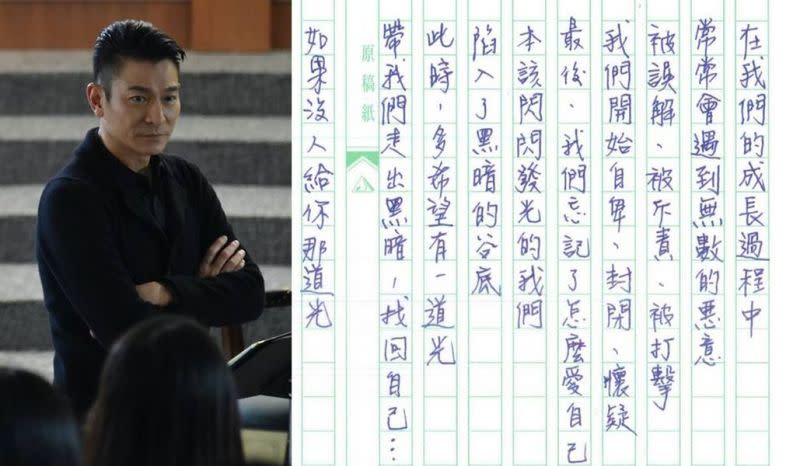 在我們的成長過程中
常常會遇到無數的惡意
被誤解、被斥責、被打擊
我們開始自卑、封閉、懷疑
最後，我們忘記了怎麼愛自己
本該閃閃發光的我們
陷入了黑暗的谷底
此時，多希望有一道光
帶我們走出黑暗，找回自己…
原稿紙
如果沒人給你那道光